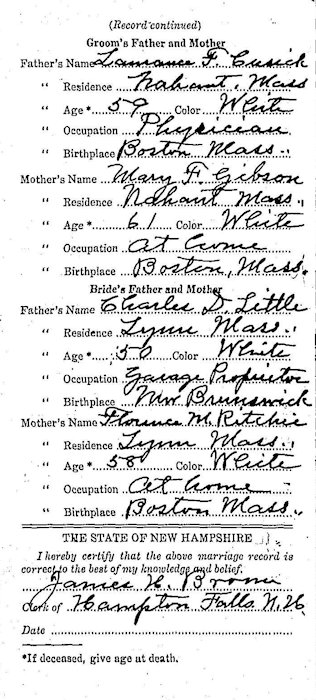 (Record continued)
Groom's Father and Mother
Father's Name Lawrance F. Cusick
" Residence Nahant, Mass
" Age* 59 Color White
" Occupation Physician
" Birthplace Boston Mass.
Mother's Name Mary F. Gibson
" Residence Nahant Mass.
" Age* 61 Color White
" Occupation At home
" Birthplace Boston, Mass.
Bride's Father and Mother
Father's Name Charles D. Little
" Residence Lynn Mass.
" Age* 56 Color White
" Occupation Garage Proprietor
" Birthplace New Brunswick
Mother's Name Florence M. Ritchie
" Residence Lynn Mass.
" Age* 58 Color White
" Occupation At home
" Birthplace Boston Mass.
THE STATE OF NEW HAMPSHIRE
I hereby certify that the above marriage record is
correct to the best of my knowledge and belief.
James H. Brown
Clerk of Hampton Falls N.H.
Date
*If deceased, give age at death.